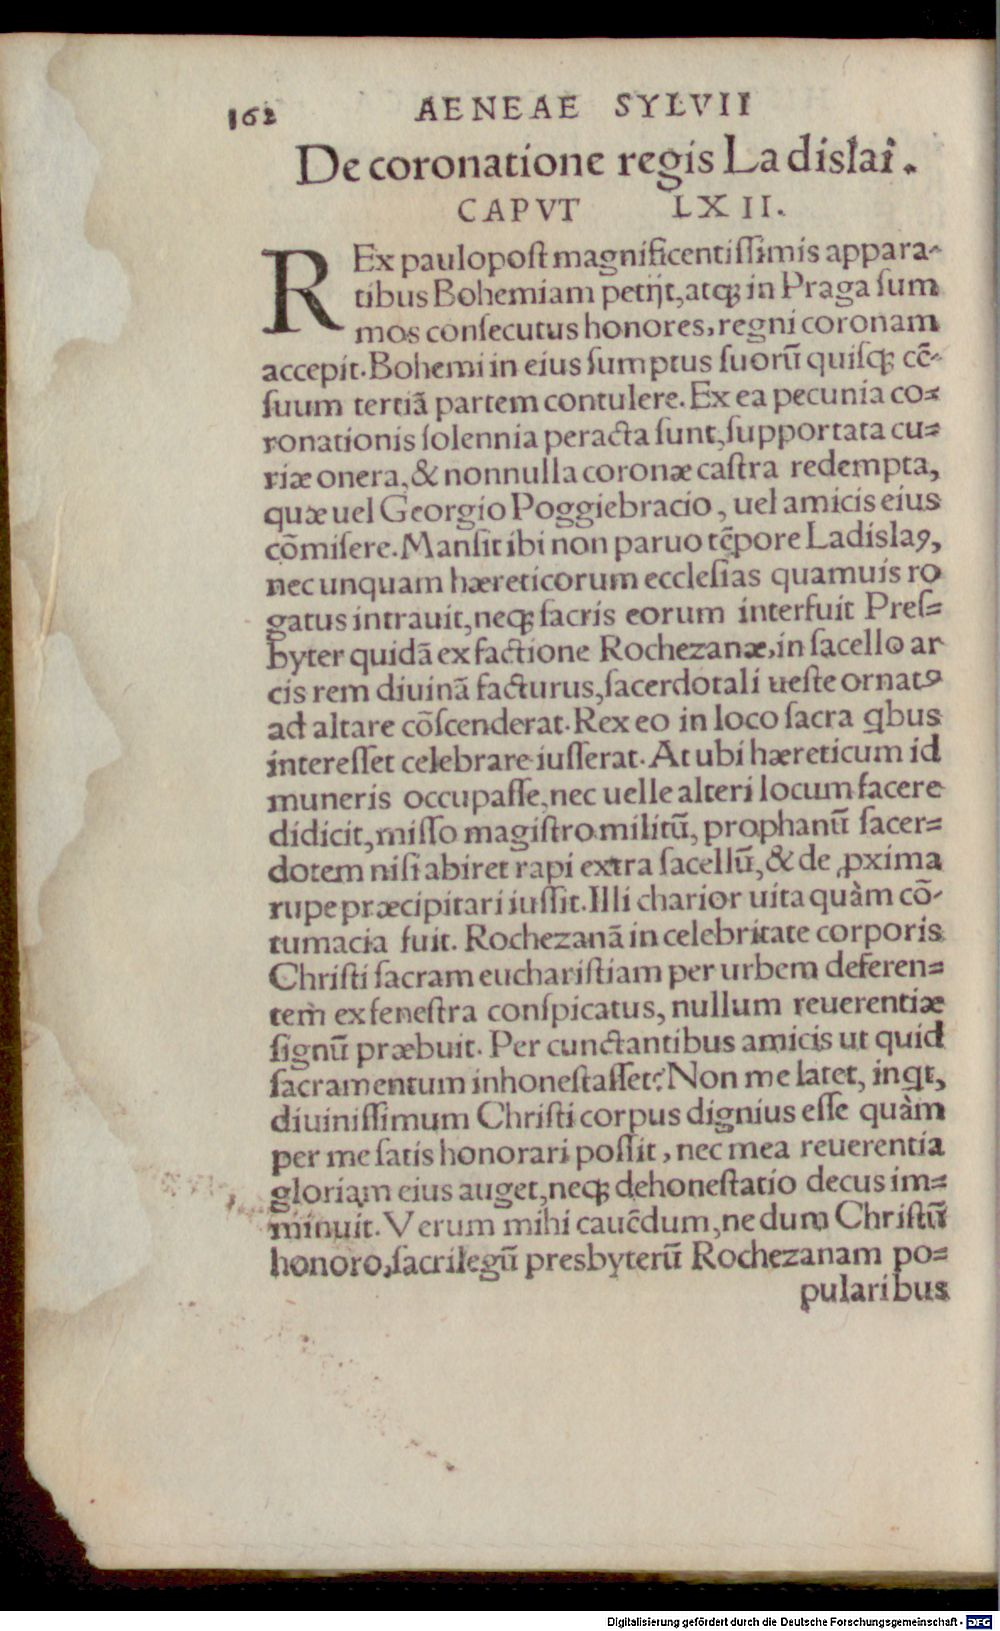 162 AENEAE SYLVII
De coronatione regis Ladislai.
CAPVT LXII.
REx paulopost magnificentissimis appara-
tibus Bohemiam petijt, atq; in Praga sum
mos consecutus honores, regni coronam
accepit. Bohemi in eius sumptus suorũ quisq; cẽ-
suum tertiã partem contulere. Ex ea pecunia co=
ronationis solennia peracta sunt, supportata cu=
riæ onera, & nonnulla coronæ castra redempta,
quæ uel Georgio Poggiebracio, uel amicis eius
cõmisere. Mansit ibi non paruo tẽpore Ladislaꝰ,
nec unquam hæreticorum ecclesias quamuis ro
gatus intrauit, neq; sacris eorum interfuit Pres=
byter quidã ex factione Rochezanæ, in sacello ar
cis rem diuinã facturus, sacerdotali ueste ornatꝰ
ad altare cõscenderat. Rex eo in loco sacra ꝗbus
interesset celebrare iusserat. At ubi hæreticum id
muneris occupasse, nec uelle alteri locum facere
didicit, misso magistro militũ, prophanũ sacer=
dotem nisi abiret rapi extra sacellũ, & de ꝓxima
rupe præcipitari iussit. Illi charior uita quàm cõ-
tumacia fuit. Rochezanã in celebritate corporis
Christi sacram eucharistiam per urbem deferen=
tem ex fenestra conspicatus, nullum reuerentiæ
signũ præbuit. Per cunctantibus amicis ut quid
sacramentum inhonestasset? Non me latet, inꝗt,
diuinissimum Christi corpus dignius esse quàm
per me satis honorari possit, nec mea reuerentia
gloriam eius auget, neq; dehonestatio decus im=
minuit. Verum mihi cauẽdum, ne dum Christũ
honoro, sacrilegũ presbyterũ Rochezanam po=
pularibus
Digitalisierung gefördert durch die Deutsche Forschungsgemeinschaft - DFG